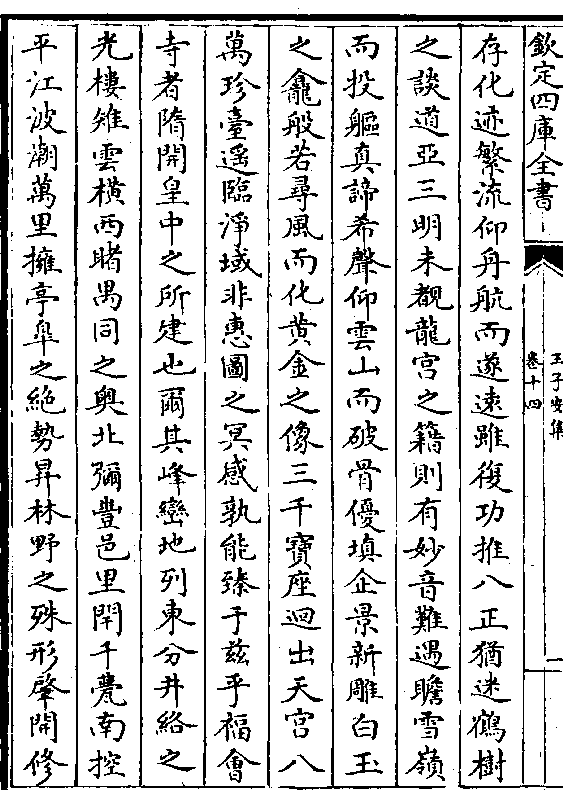 欽定四庫全書
王子安集
卷十四
一
存化迹繁流仰舟航而遂逺雖復功推八正猶迷鶴樹
之談道亞三明未覩龍宮之籍則有妙音難遇瞻雪嶺
而投軀真諦希聲仰雲山而破骨優填企景新雕白玉
之龕般若尋風而化黄金之像三千寳座迥出天宫八
萬珍臺遥臨淨域非惠圖之冥感孰能臻于兹乎福會
寺者隋開皇中之所建也爾其峰巒地列東分井絡之
光棲雉雲横西睹禺同之奥北彌豊邑里閈千甍南控
平江波潮萬里擁亭臯之絶勢昇林野之殊形肇開修